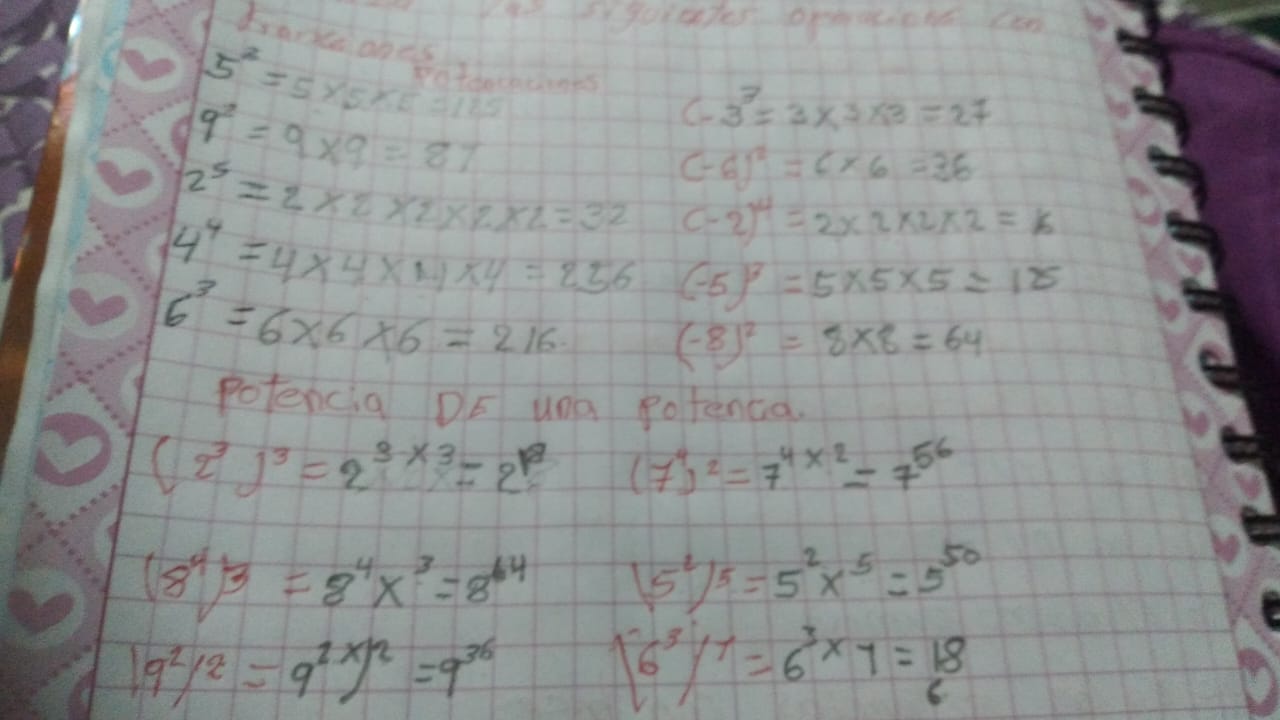 las siguientes operaciones con
fracciones
potenciaciones
5³ = 5 x 5 x 5 = 125
9² = 9 x 9 = 81
2⁵ = 2 x 2 x 2 x 2 x 2 = 32
4⁴ = 4 x 4 x 4 x 4 = 256
6³ = 6 x 6 x 6 = 216
(-3³ = 3 x 3 x 3 = 27
(-6)² = 6 x 6 = 36
(-2)⁴ = 2 x 2 x 2 x 2 =
(-5)³ = 5 x 5 x 5 = 125
(-8)² = 8 x 8 = 64
Potencia DE una Potenca.
(2³)³ = 2³ˣ³ = 2
(7⁴)² = 7⁴ˣ² = 7⁵⁶
(8⁴)3 = 8⁴x³ = 8⁶⁴
(5²)5 = 5²x⁵ = 5⁵⁰
(9²)2 = 9²ˣ)² = 9³⁶
(6³)⁷ = 6³ x 7 = 18
6